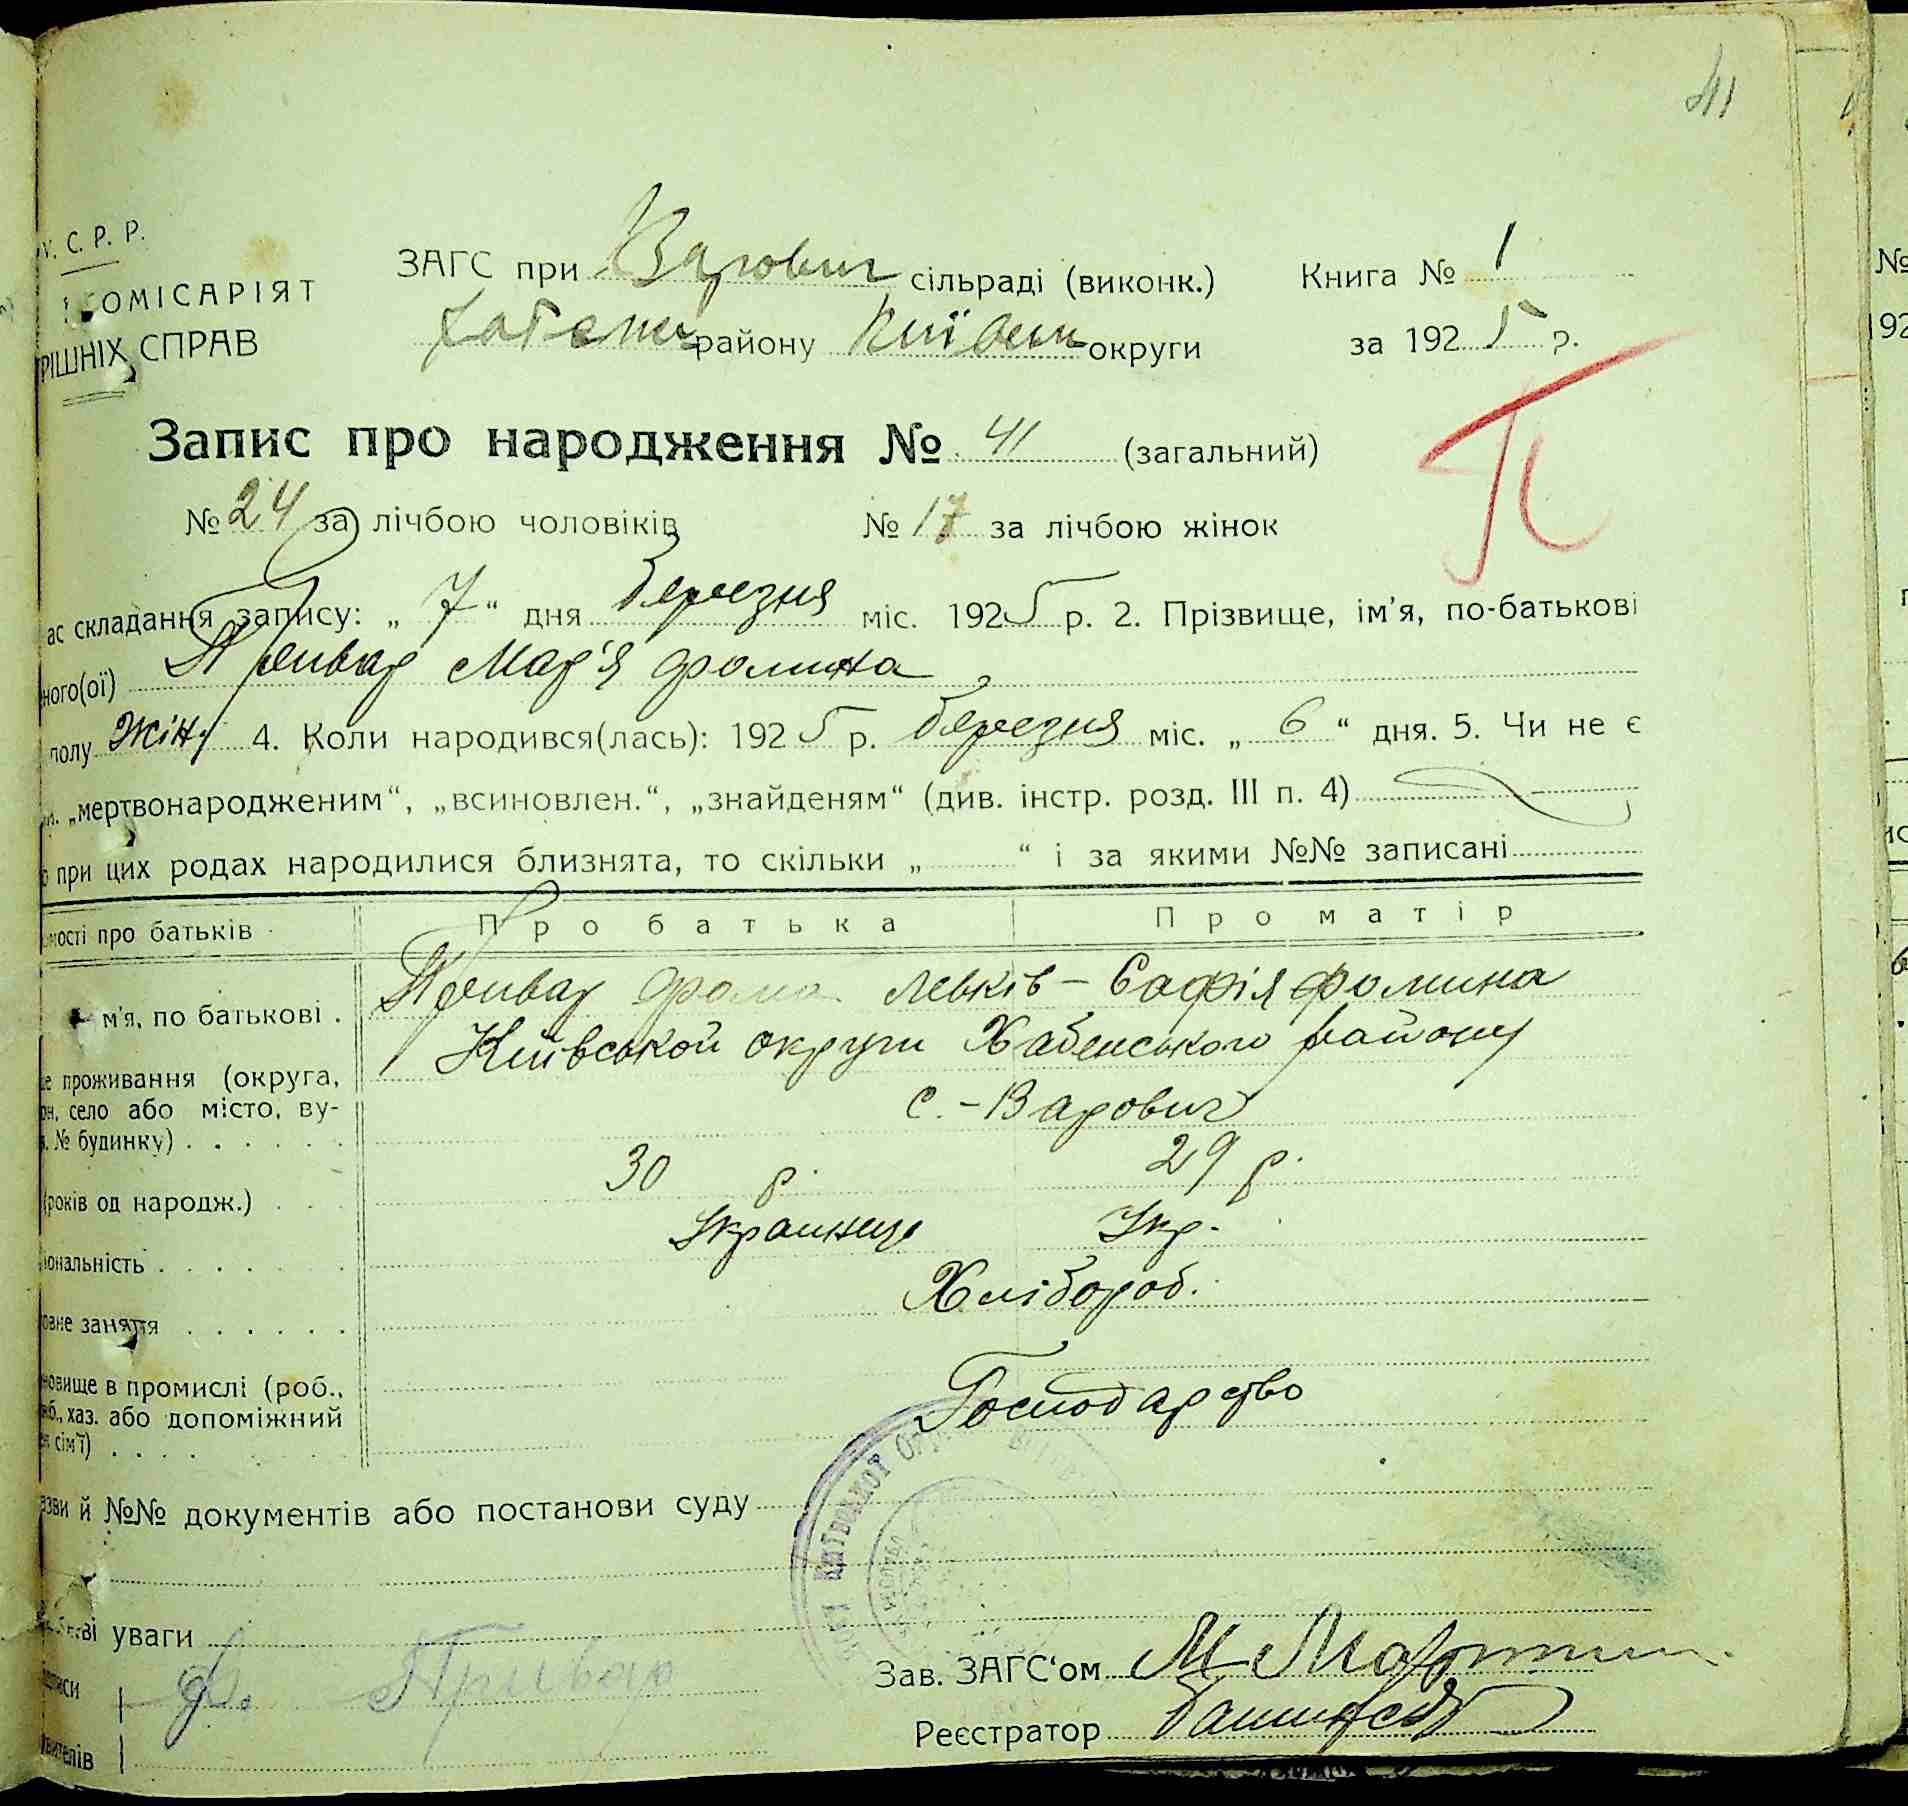 41
У. С. Р. Р.
ЗАГС при Варович сільраді (виконк.) Книга № 1
КОМІСАРІЯТ
Хабенськ району Київськ округи за 1925 р.
РІШНІХ СПРАВ
Запис про народження № 41 (загальний)
П
№ 24 за лічбою чоловіків № 17 за лічбою жінок
ас складання запису: „ 7 “ дня березня міс. 1925 р. 2. Прізвище, ім'я, по-батькові
ного(ої) Привар Мар'я Фомина
полу жін. 4. Коли народився(лась): 1925 р. березня міс. „ 6 “ дня. 5. Чи не є
„мертвонародженим“, „всиновлен.“, „знайденям“ (див. інстр. розд. III п. 4)
при цих родах народилися близнята, то скільки „ “ і за якими №№ записані
мості про батьків Про батька Про матір
м'я, по батькові . Привар Фома Левків – Софія Фомина
Київської округи Хабенського району
е проживання (округа,
он, село або місто, ву- с. – Варович
№ будинку)
(років од народж.) 30 р. 29 р.
іональність Українець Укр.
ване заняття Хлібороб.
новище в промислі (роб.,
хаз. або допоміжний Господарство
сім'ї)
азви й №№ документів або постанови суду
ві уваги
Зав. ЗАГС'ом
писи Ф. Привар
Реєстратор
вителів